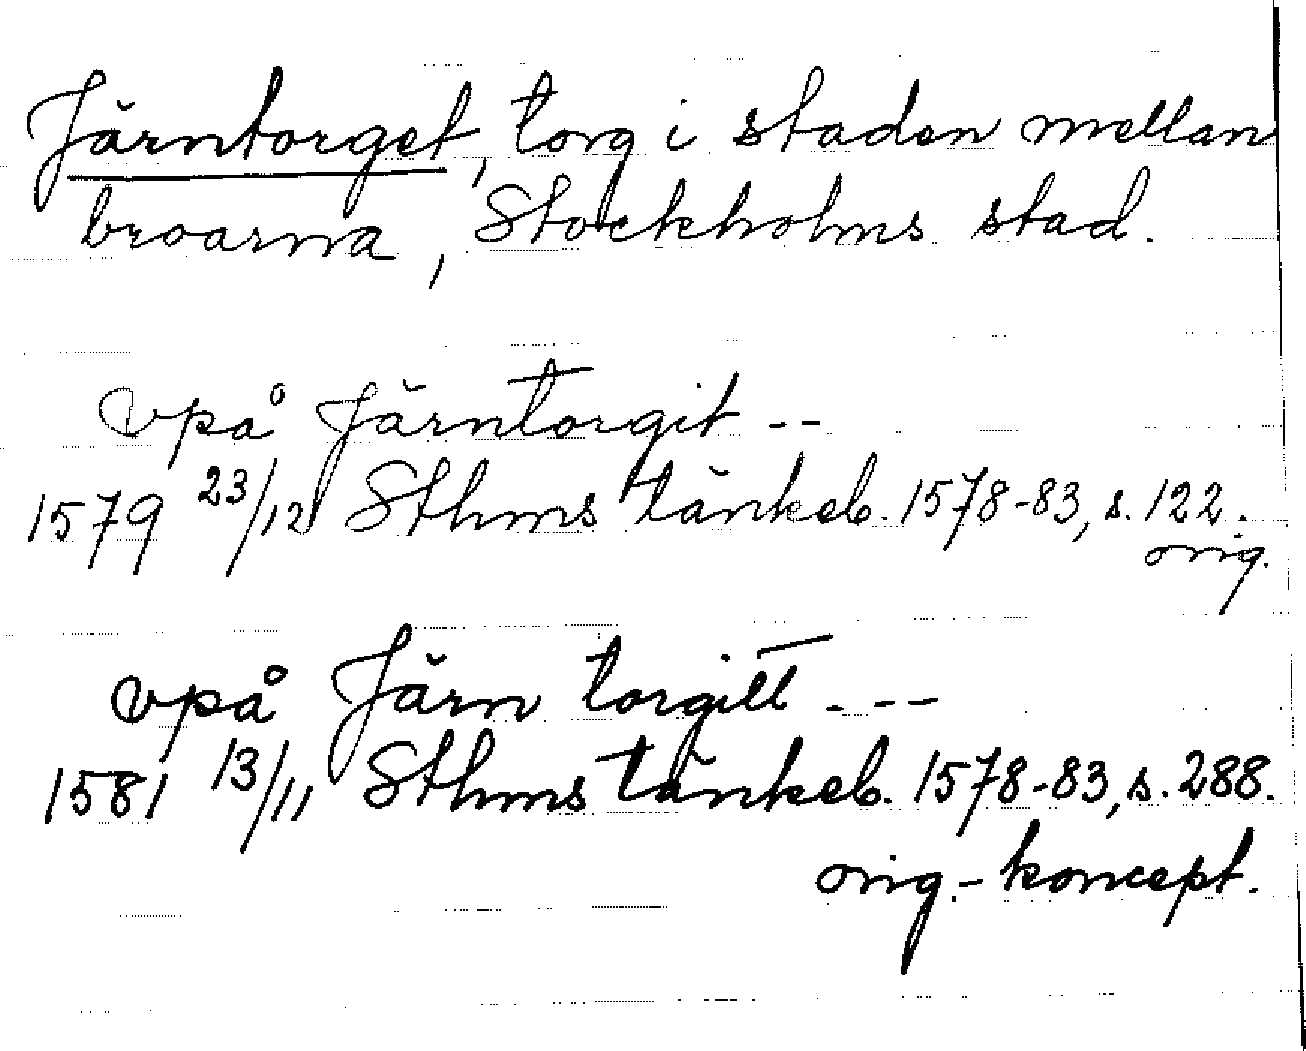 Järntorget, torg i staden mellan
broarna, Stockholms stad.
vpå Järntorgit --
1579 23/12 Sthms tänkeb. 1578-83, s. 122.
orig.
vpå Järn torgitt ---
1581 13/11 Sthms tänkeb. 1578-83, s. 288.
orig.-koncept.